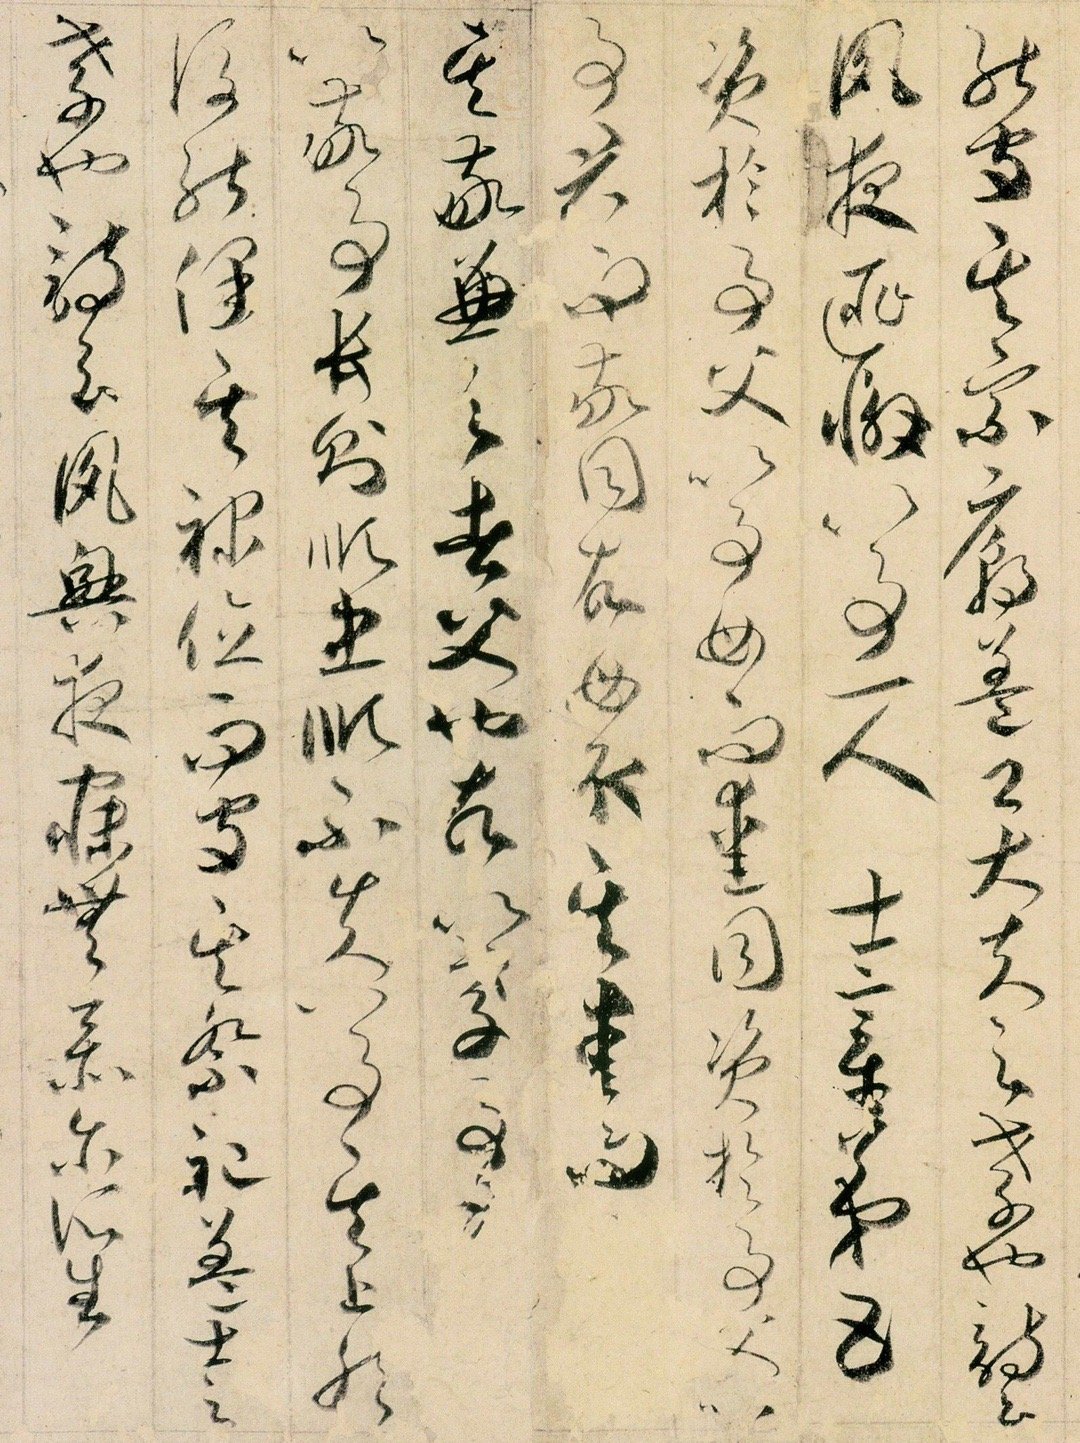 能守其宗廟蓋卿大夫之孝也詩云
夙夜匪懈以事一人　士章第五
資於事父以事母而愛同資於事父以
事君而敬同故母取其愛而
其敬兼之者父也故以孝事君
以敬事長則順忠順不失以事其上然
後能保其祿位而守其祭祀蓋士之
孝也詩云夙興夜寐無忝爾所生